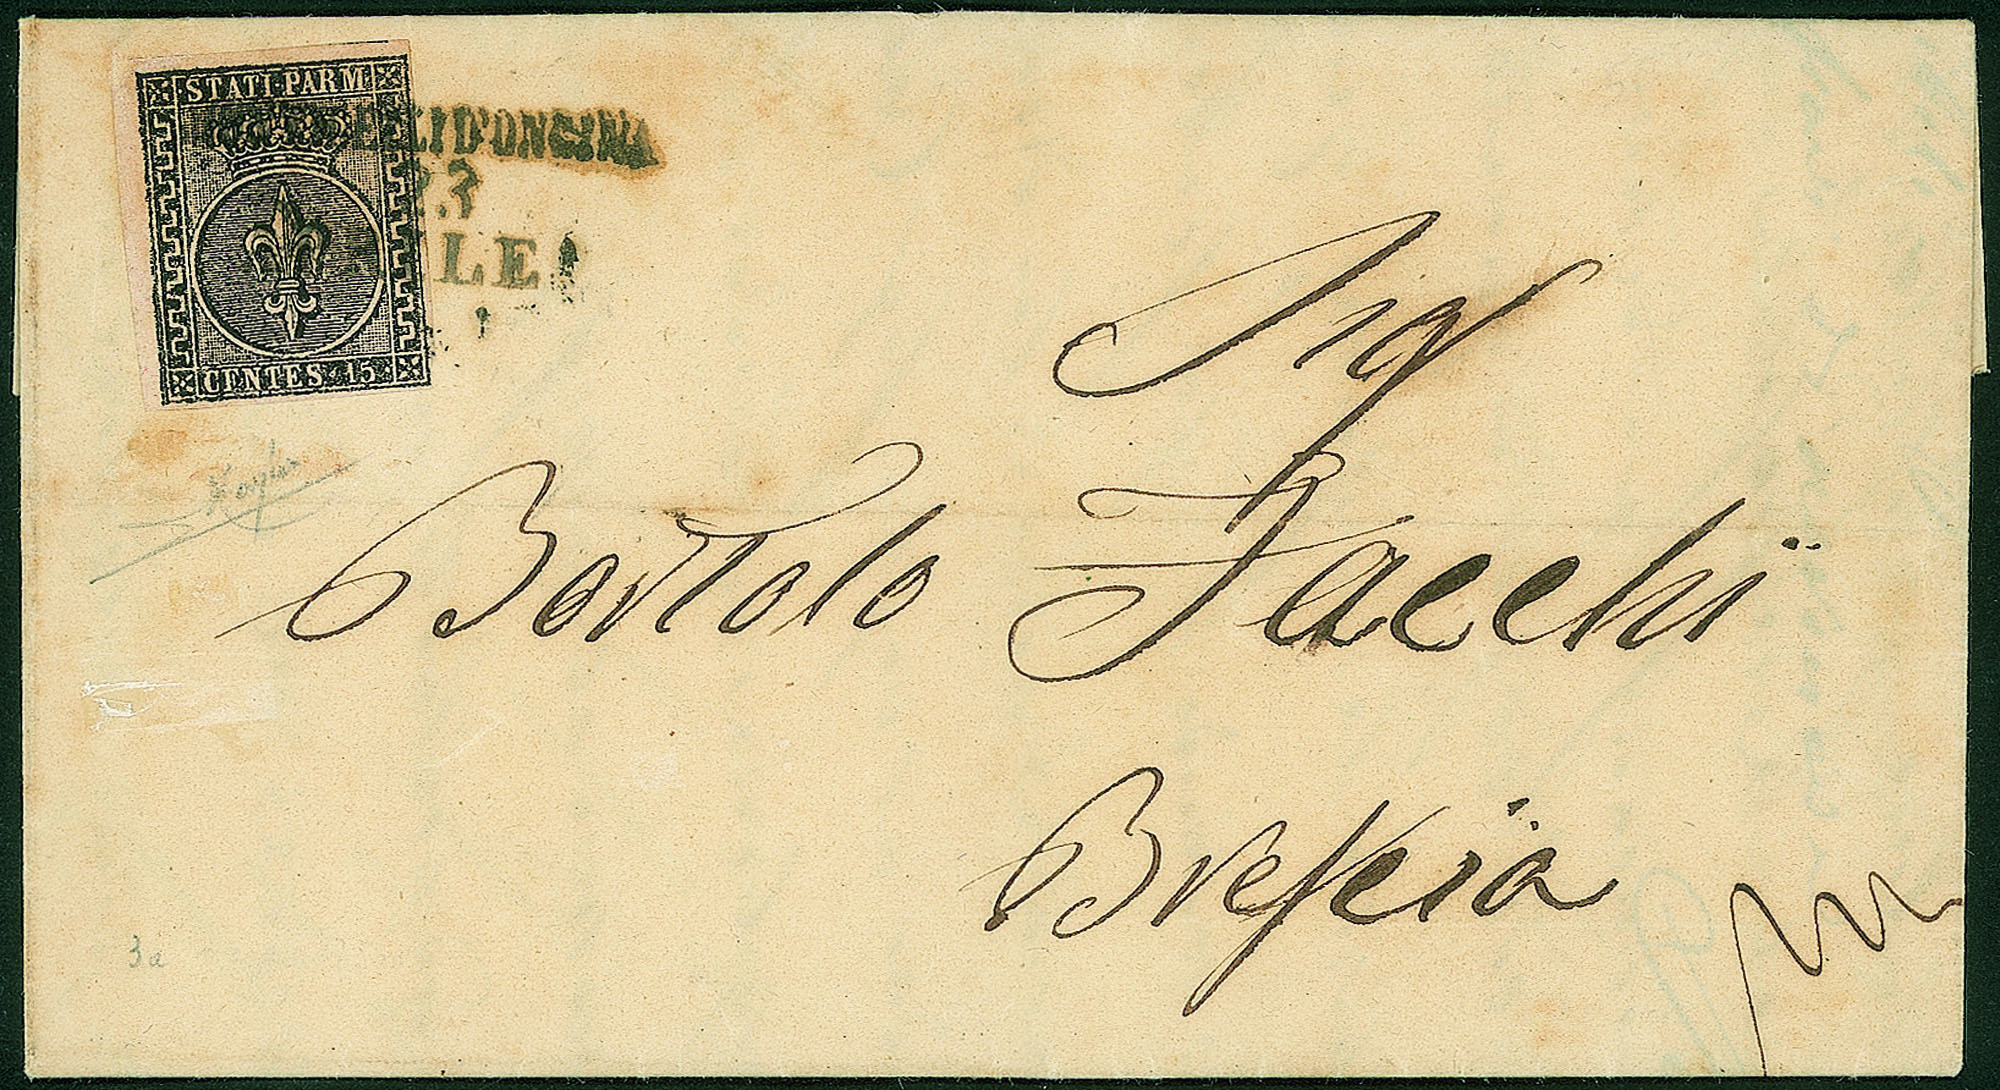 STATI PARM
CENTES 15
EZZI D'ONGINA
23
LE
Sig
Bortolo Facchi
Brescia
3a